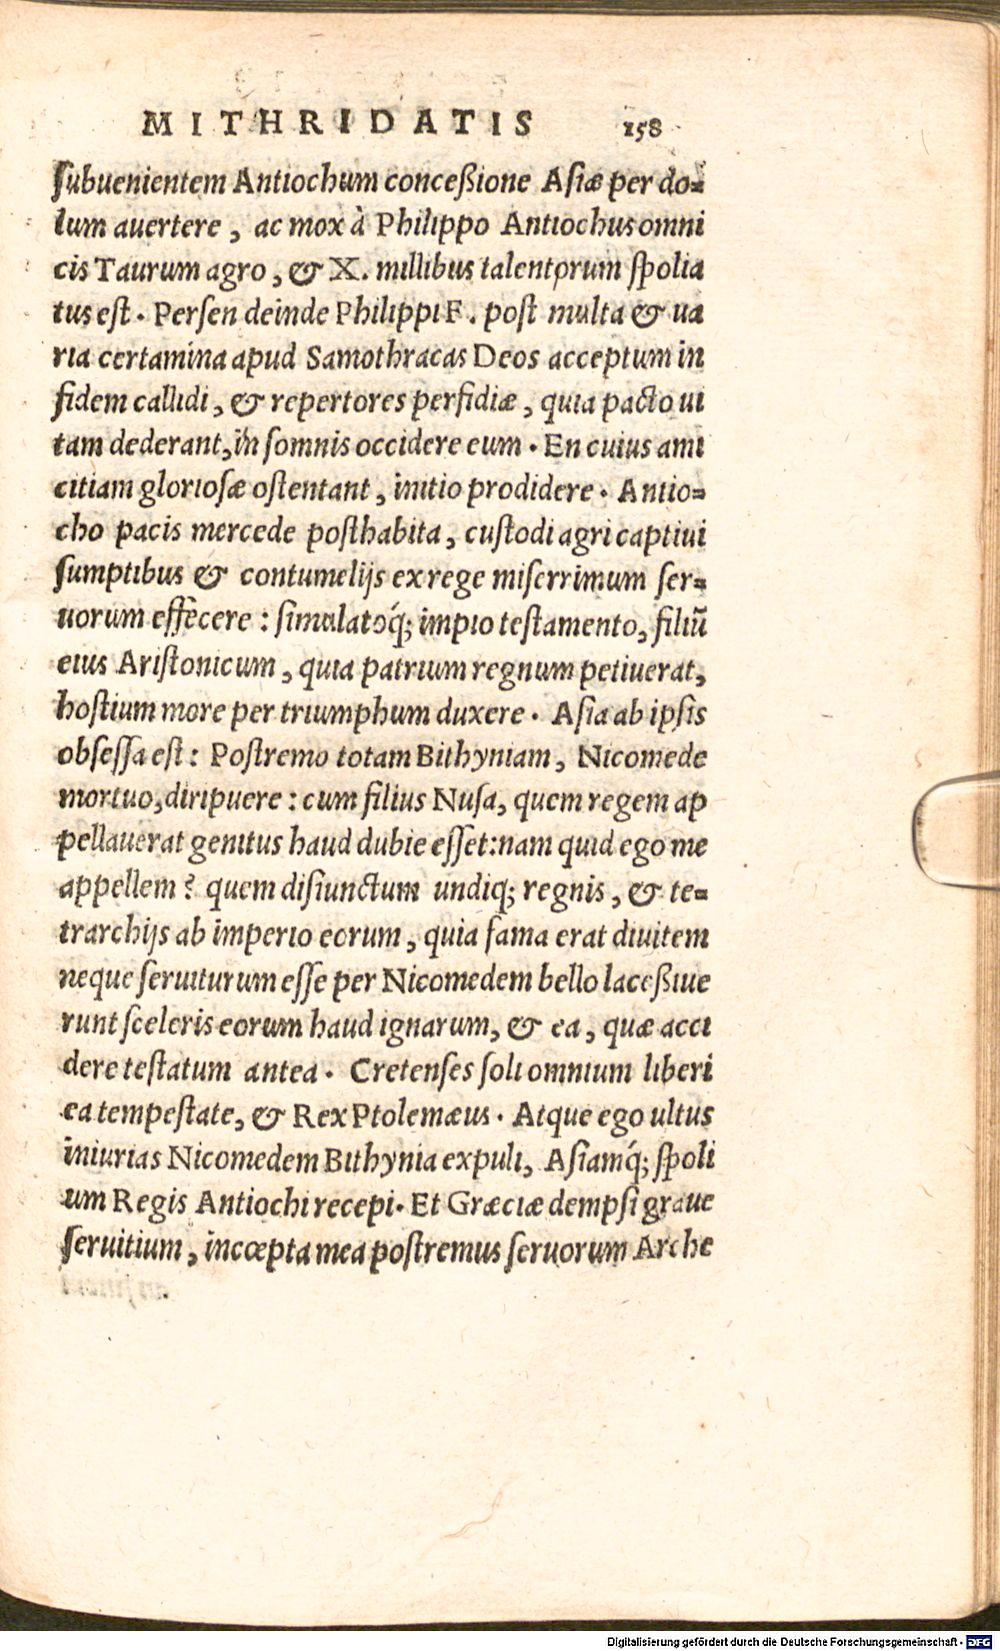 MITHRIDATIS 158
ſubuenientem Antiochum conceßione Aſiæ per do=
lum auertere, ac mox à Philippo Antiochus omni
cis Taurum agro, & X. millibus talentorum ſpolia
tus eſt. Perſen deinde Philippi F. poſt multa & ua
ria certamina apud Samothracas Deos acceptum in
fidem callidi, & repertores perfidiæ, quia pacto ui
tam dederant, in ſomnis occidere eum. En cuius ami
citiam glorioſæ oſtentant, initio prodidere. Antio=
cho pacis mercede poſthabita, cuſtodi agri captiui
ſumptibus & contumelijs ex rege miſerrimum ſer=
uorum effecere: ſimulatoq́; impio teſtamento, filiũ
eius Ariſtonicum, quia patrium regnum petiuerat,
hoſtium more per triumphum duxere. Aſia ab ipſis
obſeſſa eſt: Poſtremo totam Bithyniam, Nicomede
mortuo, diripuere: cum filius Nuſa, quem regem ap
pellauerat genitus haud dubie eſſet: nam quid ego me
appellem? quem diſiunctum undiq; regnis, & te=
trarchijs ab imperio eorum, quia fama erat diuitem
neque ſeruiturum eſſe per Nicomedem bello laceßiue
runt ſceleris eorum haud ignarum, & ea, quæ acci
dere teſtatum antea. Cretenſes ſoli omnium liberi
ea tempeſtate, & Rex Ptolemæus. Atque ego ultus
iniurias Nicomedem Bithynia expuli, Aſiamq́; ſpoli
um Regis Antiochi recepi. Et Græciæ dempſi graue
ſeruitium, incœpta mea poſtremus ſeruorum Arche
Digitalisierung gefördert durch die Deutsche Forschungsgemeinschaft - DFG